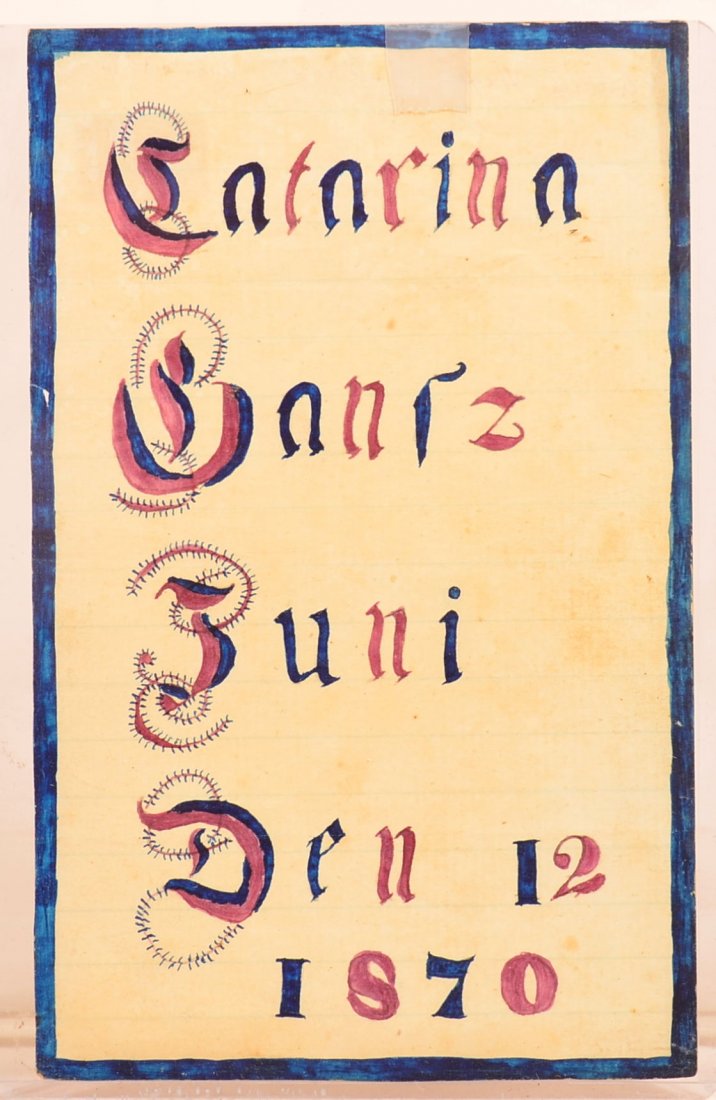 Catarina
Ganſz
Juni
Den 12
1870